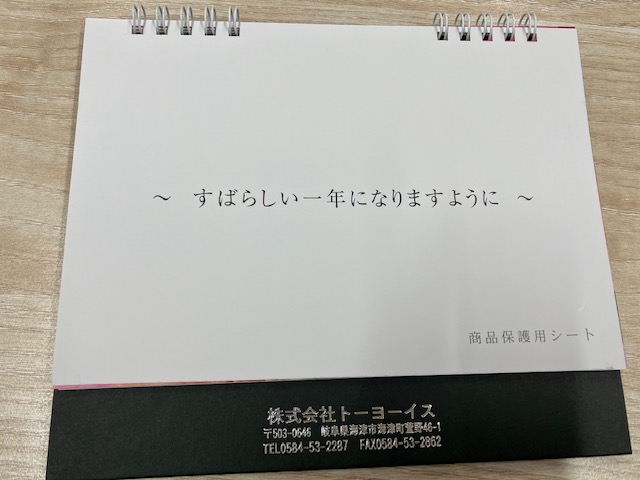 ～ すばらしい一年になりますように ～
商品保護用シート
株式会社トーヨーイス
〒503-0646 岐阜県海津市海津町萱野46-1
TEL0584-53-2287 FAX0584-53-2862